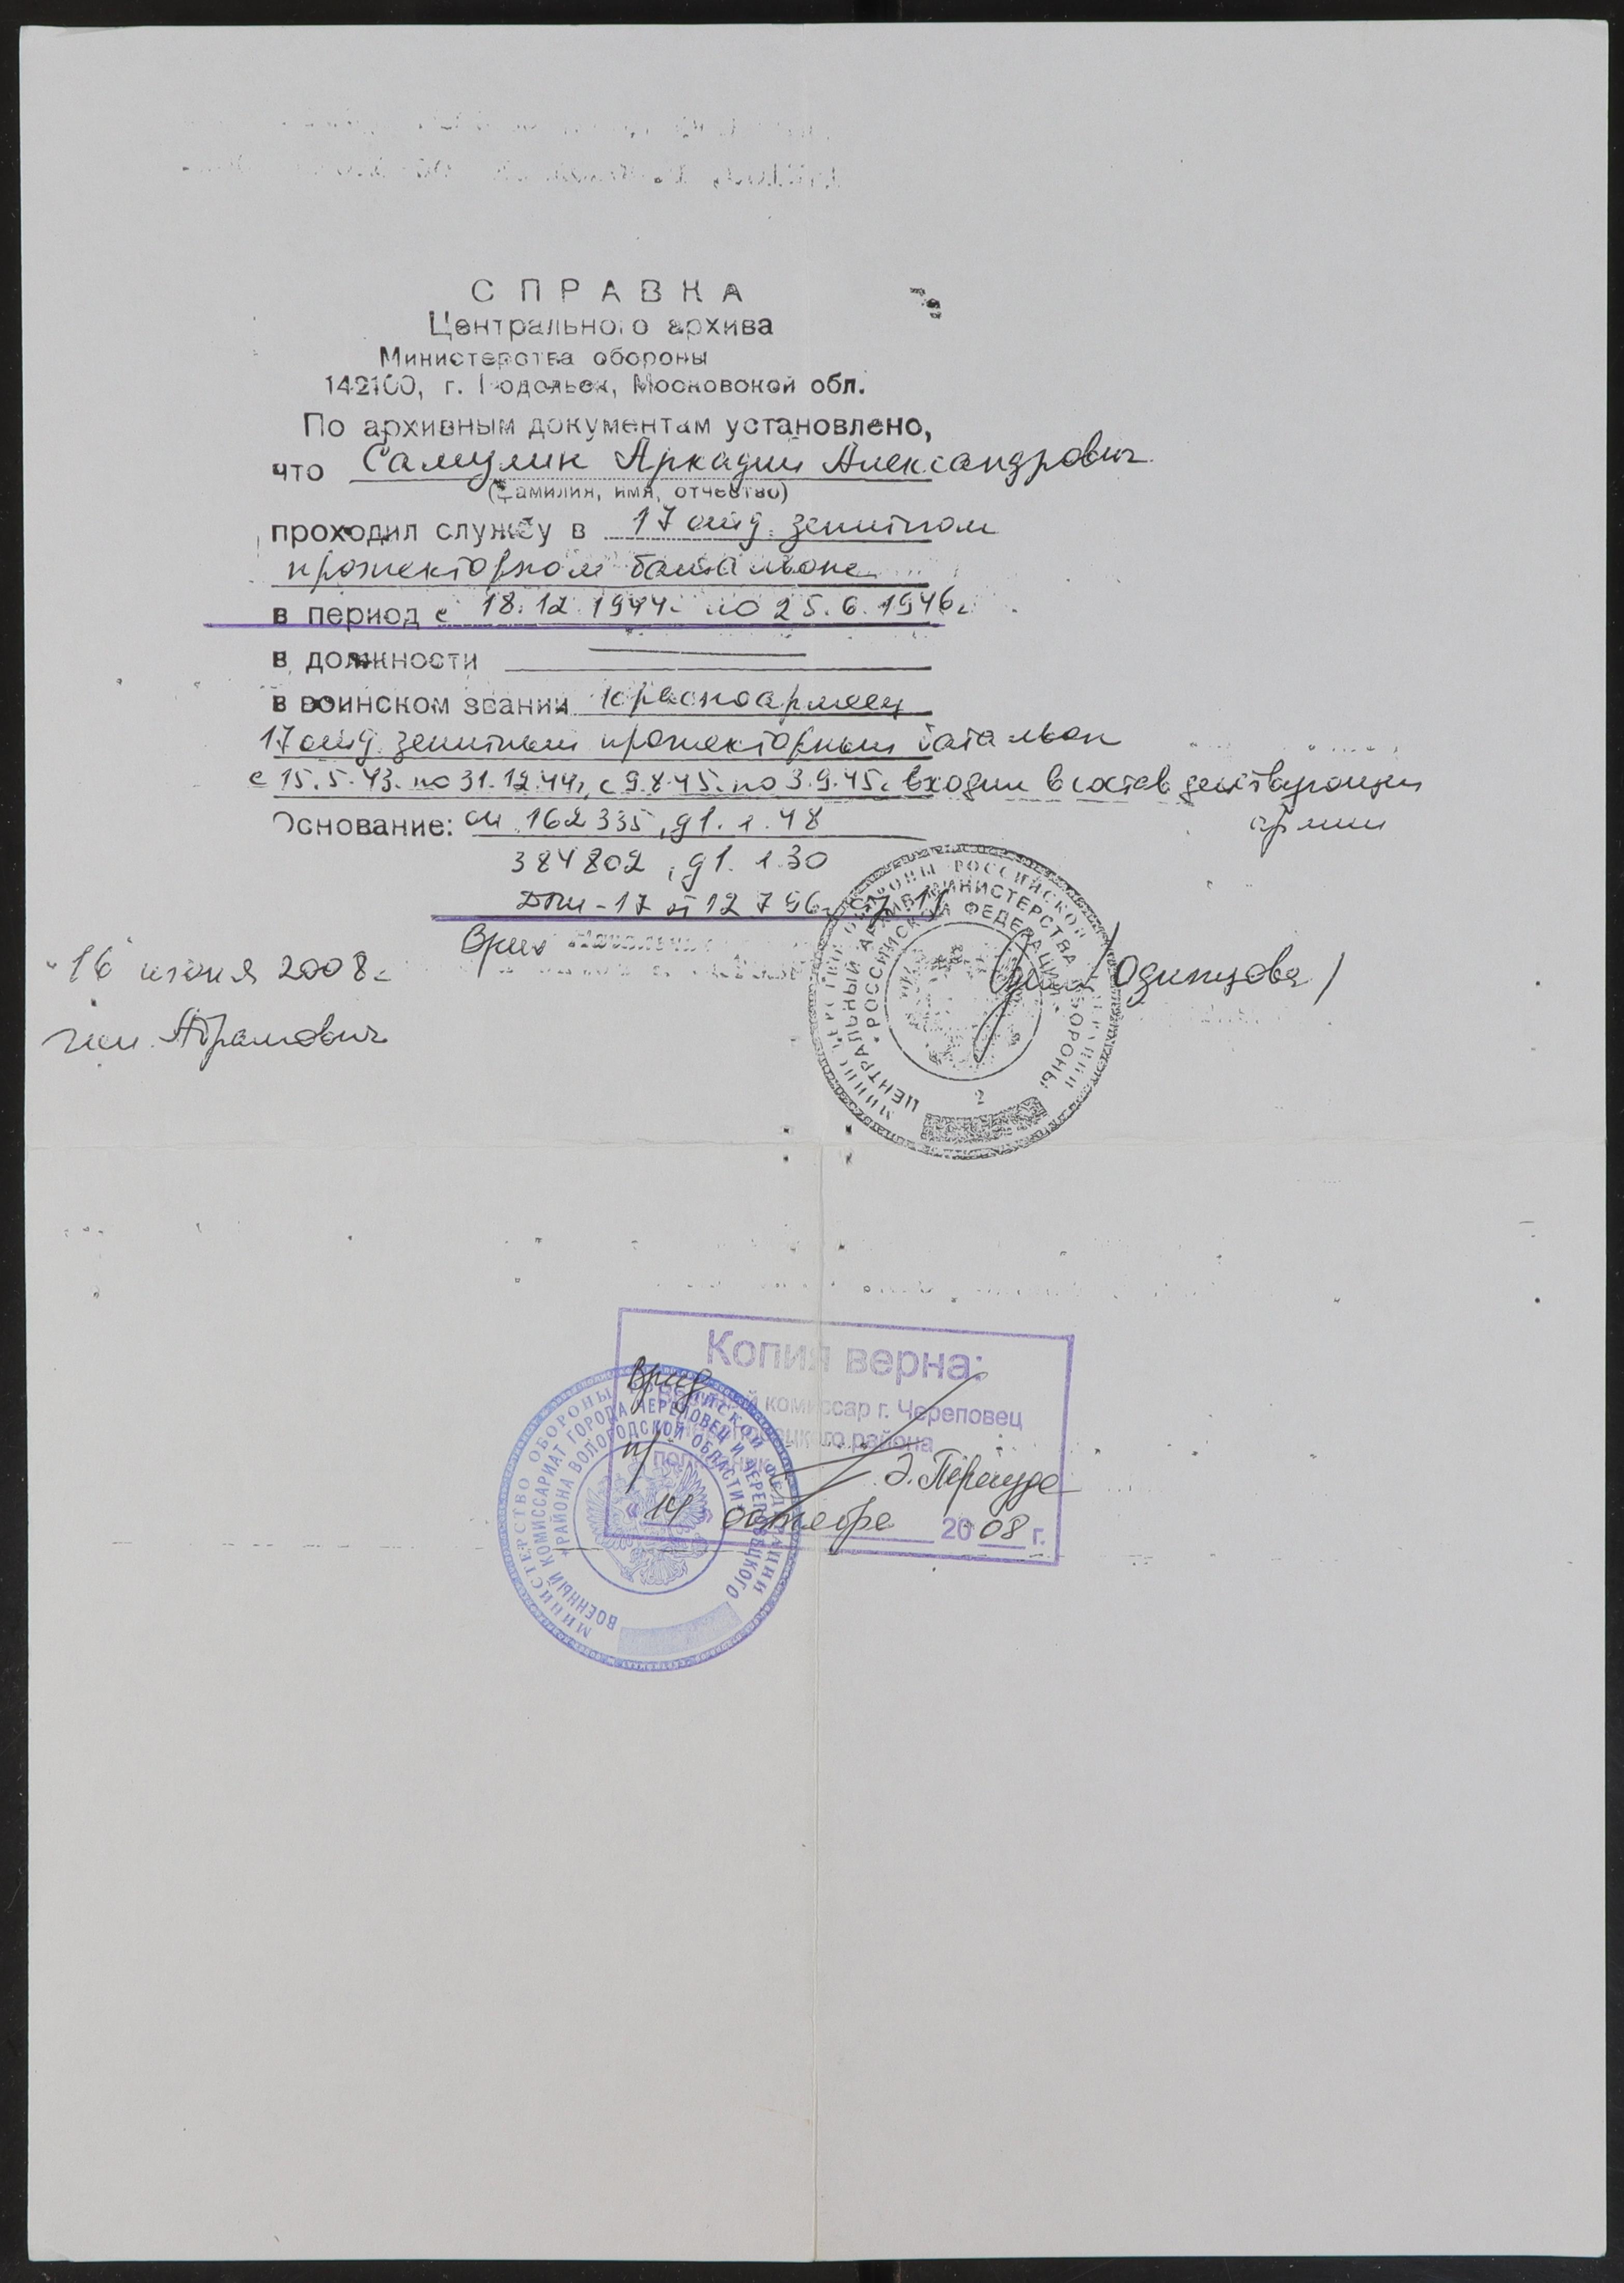 СПРАВКА
Центрального архива
Министерства обороны
142100, г. Подольск, Московской обл.
По архивным документам установлено,
что Самулин Аркадий Александрович
(фамилия, имя, отчество)
проходил службу в 17 отд. зенитном
прожекторном батальоне
в период с 18.12.1944. по 25.6.1946г
в должности
в воинском звании красноармеец
17 отд. зенитный прожекторный батальон
с 15.5.43. по 31.12.44г, с 9.8.45. по 3.9.45г входил в состав действующей
армии
Основание: оп 162335, д1. л.48
384802, д1. л.30
12796
Врио
/Одинцова/
16 июня 2008г
исп. Абрамович
МИНИСТЕРСТВО ОБОРОНЫ РОССИЙСКОЙ ФЕДЕРАЦИИ
ЦЕНТРАЛЬНЫЙ АРХИВ МИНИСТЕРСТВА ОБОРОНЫ
РОССИЙСКОЙ ФЕДЕРАЦИИ
2
Копия верна:
Врид
Военный комиссар г. Череповец
Череповецкого района
п/полковник
Э. Перегуда
«14» октября 2008 г.
МИНИСТЕРСТВО ОБОРОНЫ РОССИЙСКОЙ ФЕДЕРАЦИИ
ВОЕННЫЙ КОМИССАРИАТ ГОРОДА ЧЕРЕПОВЕЦ И ЧЕРЕПОВЕЦКОГО
РАЙОНА ВОЛОГОДСКОЙ ОБЛАСТИ